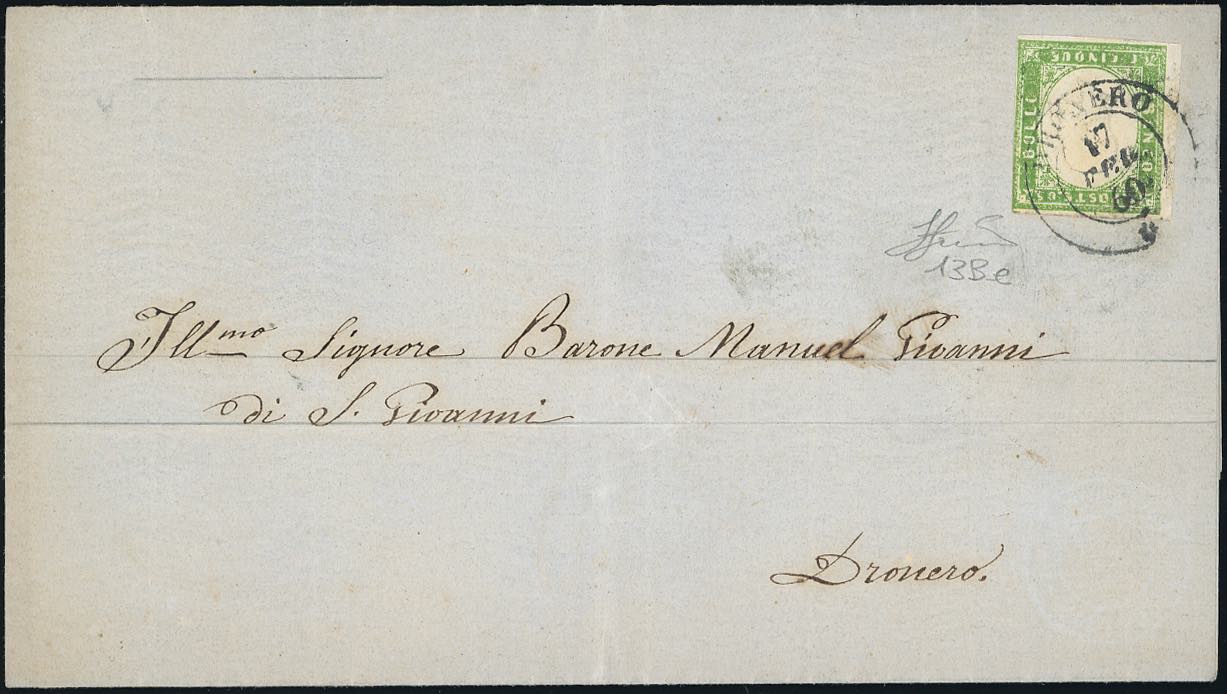 C. CINQUE
BOLLO
DRONERO
17
FEB
60
13Be
Ill.mo Signore Barone Manuel Giovanni
di S. Giovanni
Dronero.